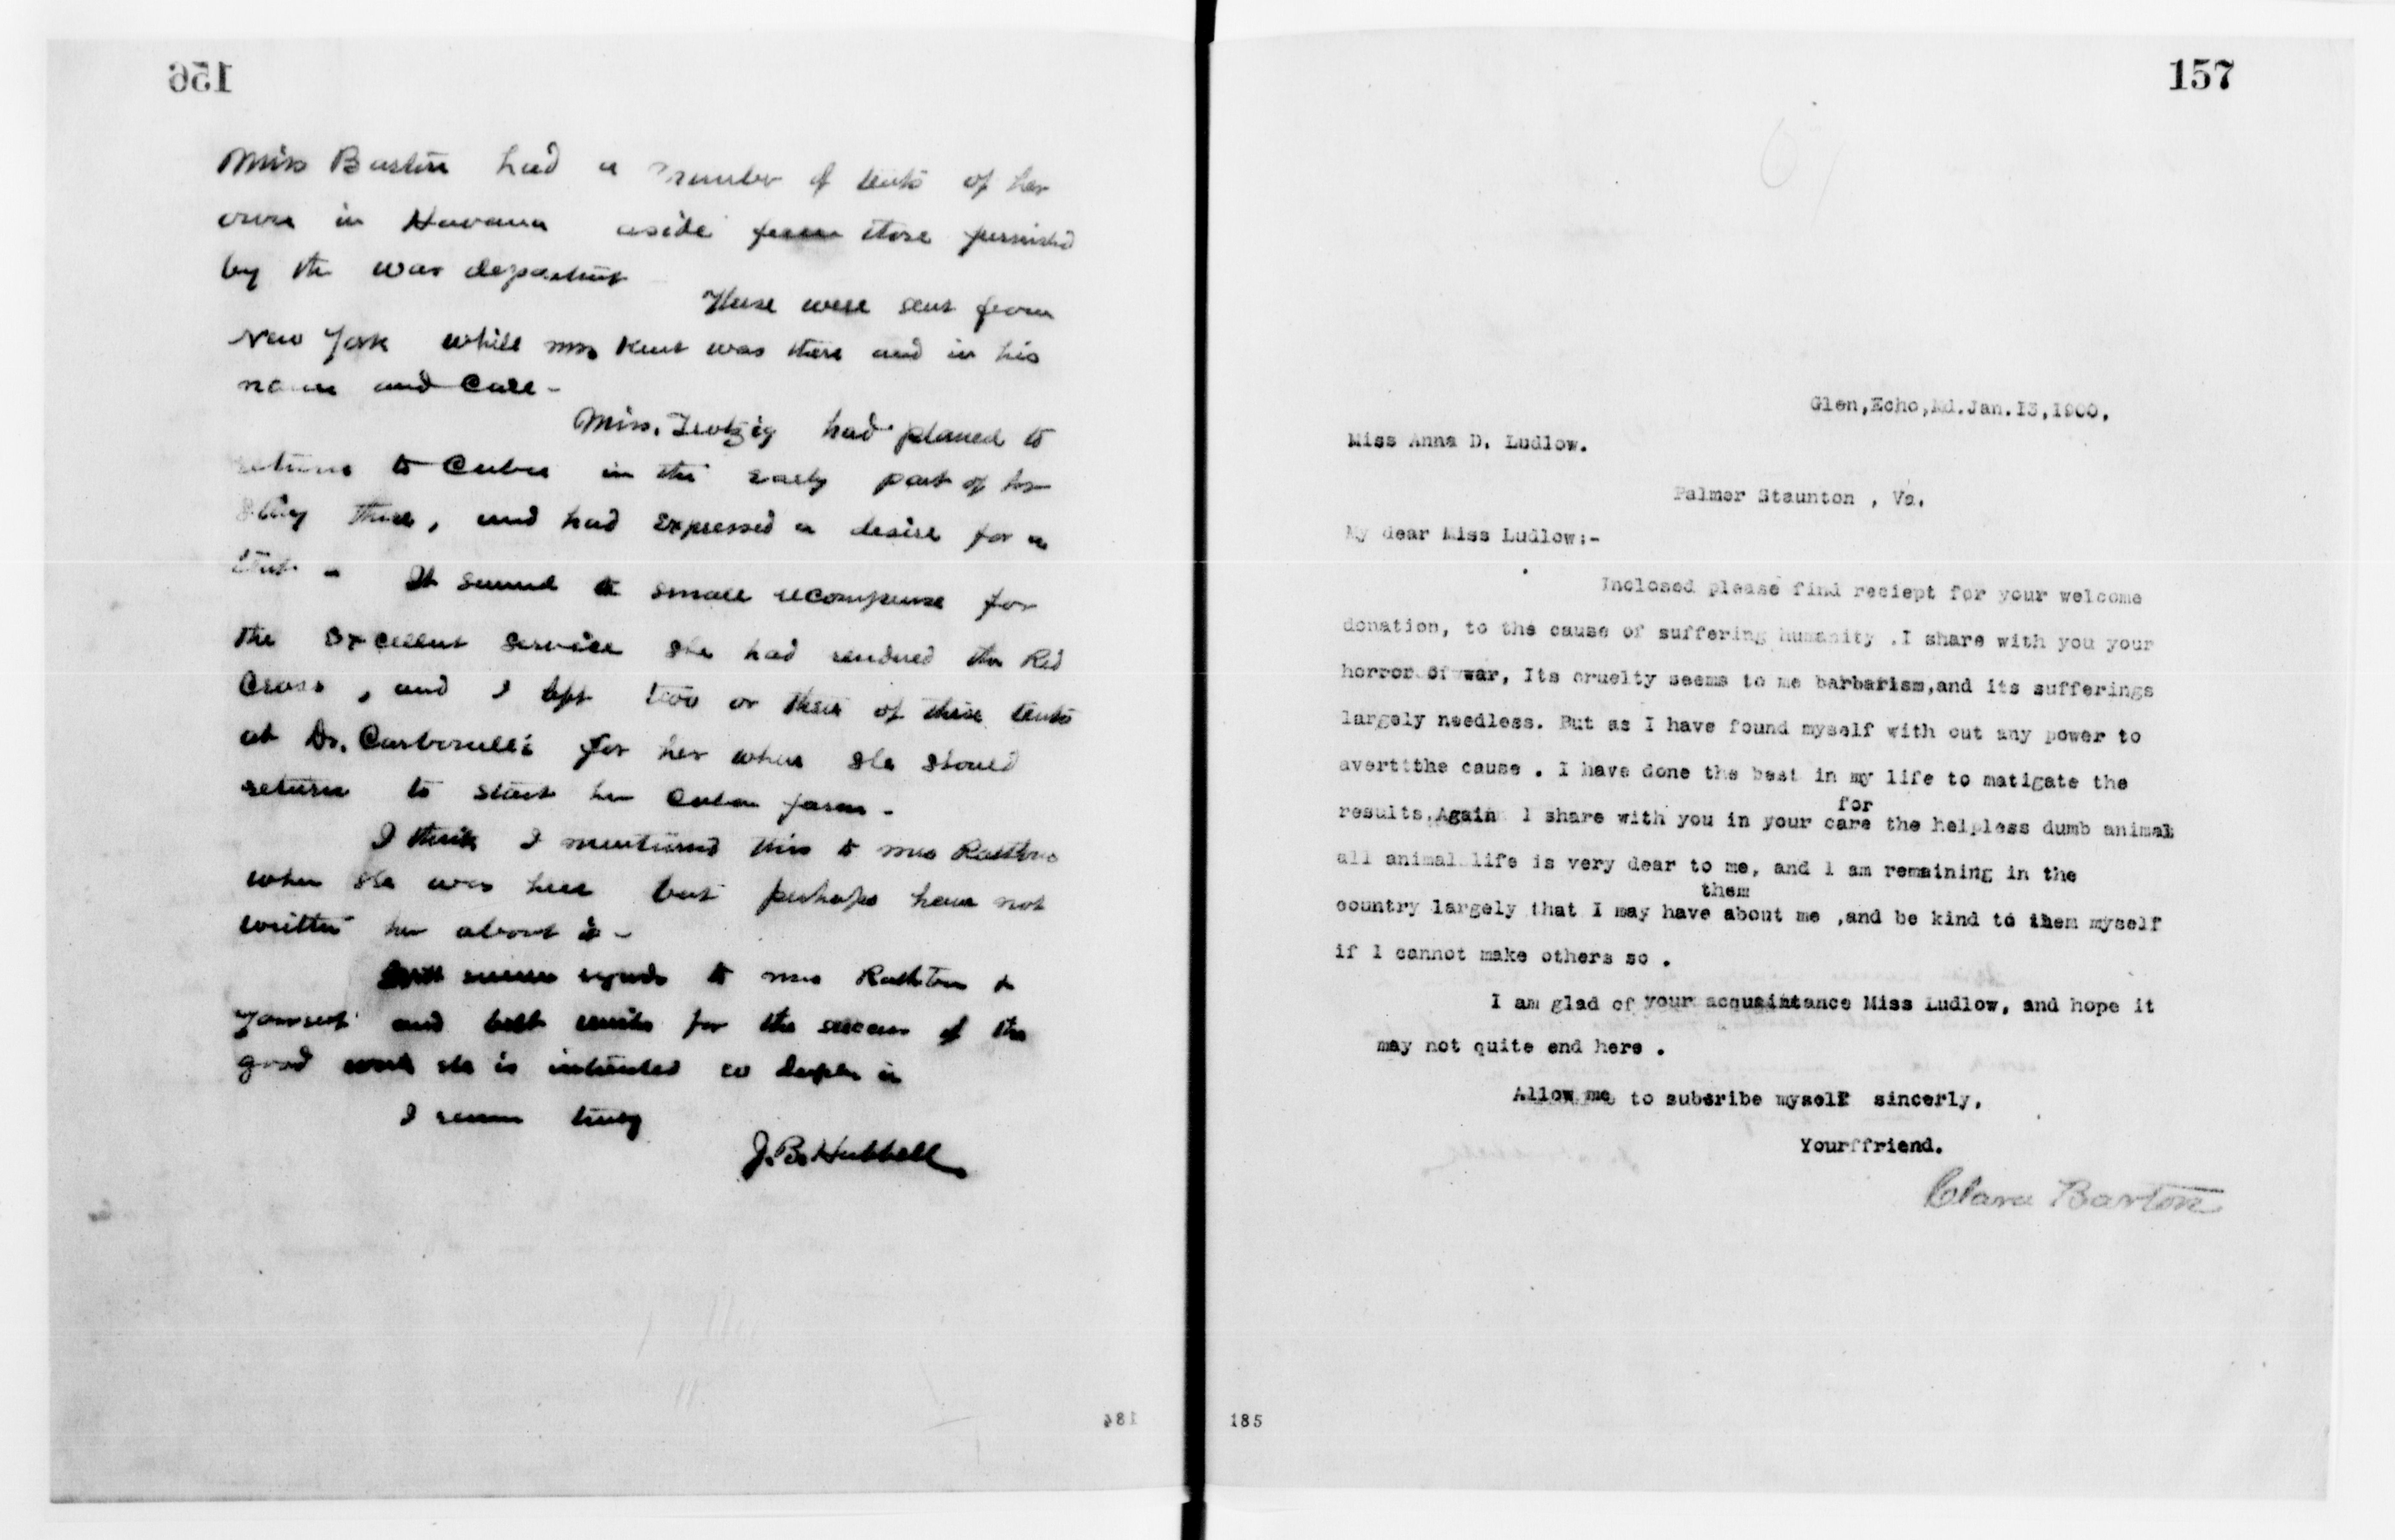 156
Miss Barton had a number of tents of her
own in Havana aside from those furnished
by the war department
These were sent from
New York while Mr Kent was there and in his
name and care -
Miss. had planed to
return to Cuba in the early part of her
stay there, and had expressed a desire for a
tent - It seemed a small recompense for
the excellent service she had rendered the Red
Cross, and I left two or three of these tents
at Dr. for her when she should
return to start her Cuban farm -
I think I mentioned this to Mrs Rathbone
when she was here but perhaps have not
written her about it -
With sincere regards to Mrs &
yourself and best wishes for the success of the
good work she is interested so deeply in
I remain truly
J.B. Hubbell
184
157
Glen,Echo,Md.Jan.I3,1900.
Miss Anna D. Ludlow.
Palmer Staunton , Va.
My dear Miss Ludlow:-
Inclosed please find reciept for your welcome
donation, to the cause of suffering humanity .I share with you your
horror of war, Its cruelty seems to me barbarism,and its sufferings
largely needless. But as I have found myself with out any power to
averttthe cause . I have done the best in my life to matigate the
results.Again I share with you in your care for the helpless dumb animal
all animal life is very dear to me, and I am remaining in the
country largely that I may have them about me ,and be kind to them myself
if I cannot make others so .
I am glad of your acquaintance Miss Ludlow, and hope it
may not quite end here .
Allow me to subsribe myself sincerly,
Yourffriend.
Clara Barton
185